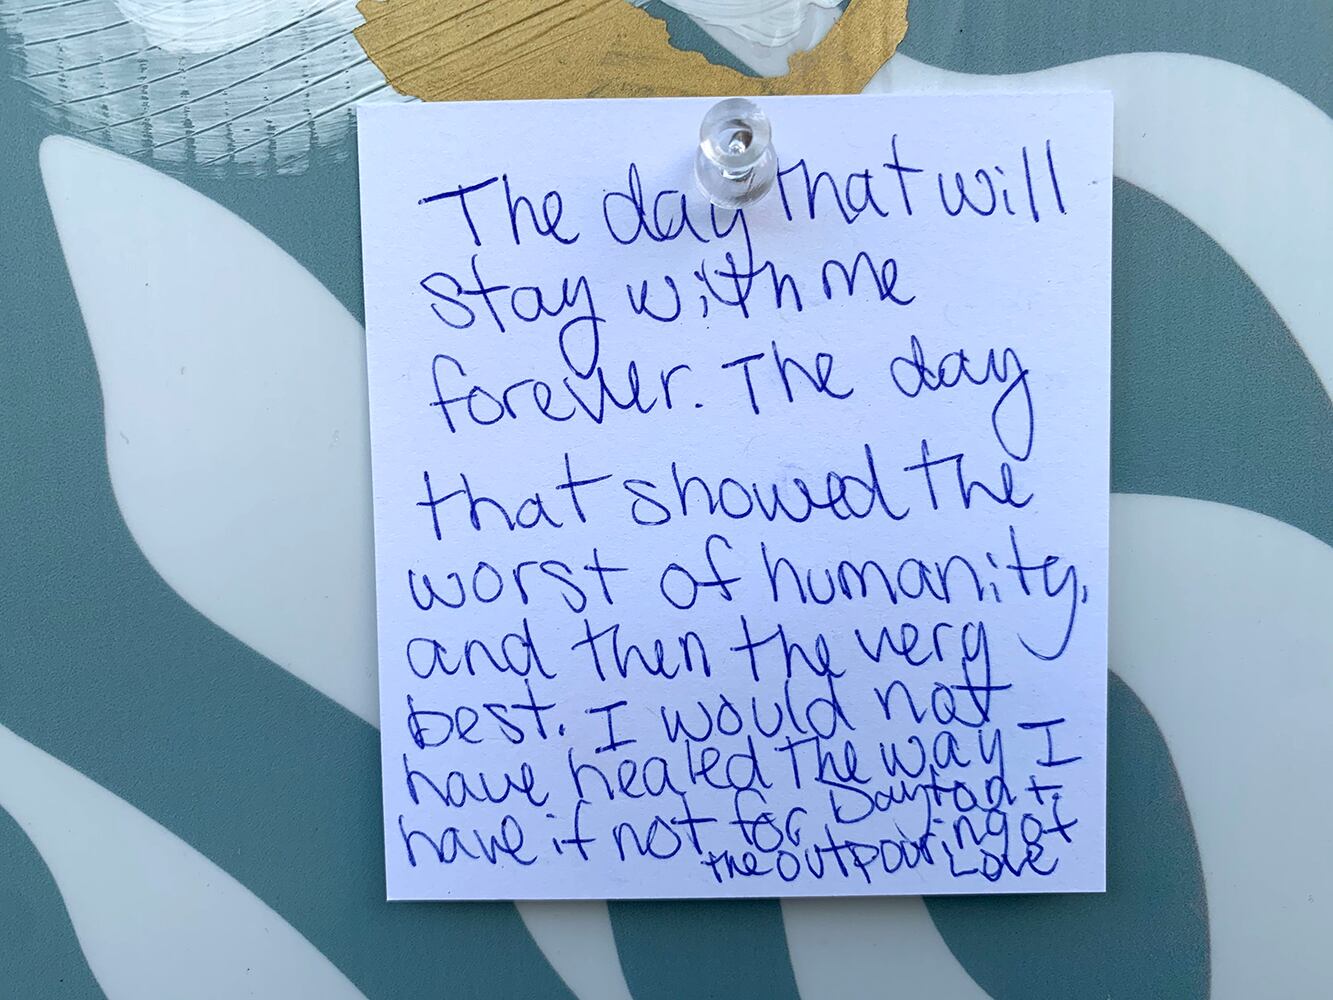 The day that will
stay with me
forever. The day
that showed the
worst of humanity,
and then the very
best. I would not
have healed the way I
have if not for Dayton +
the outpouring of
Love